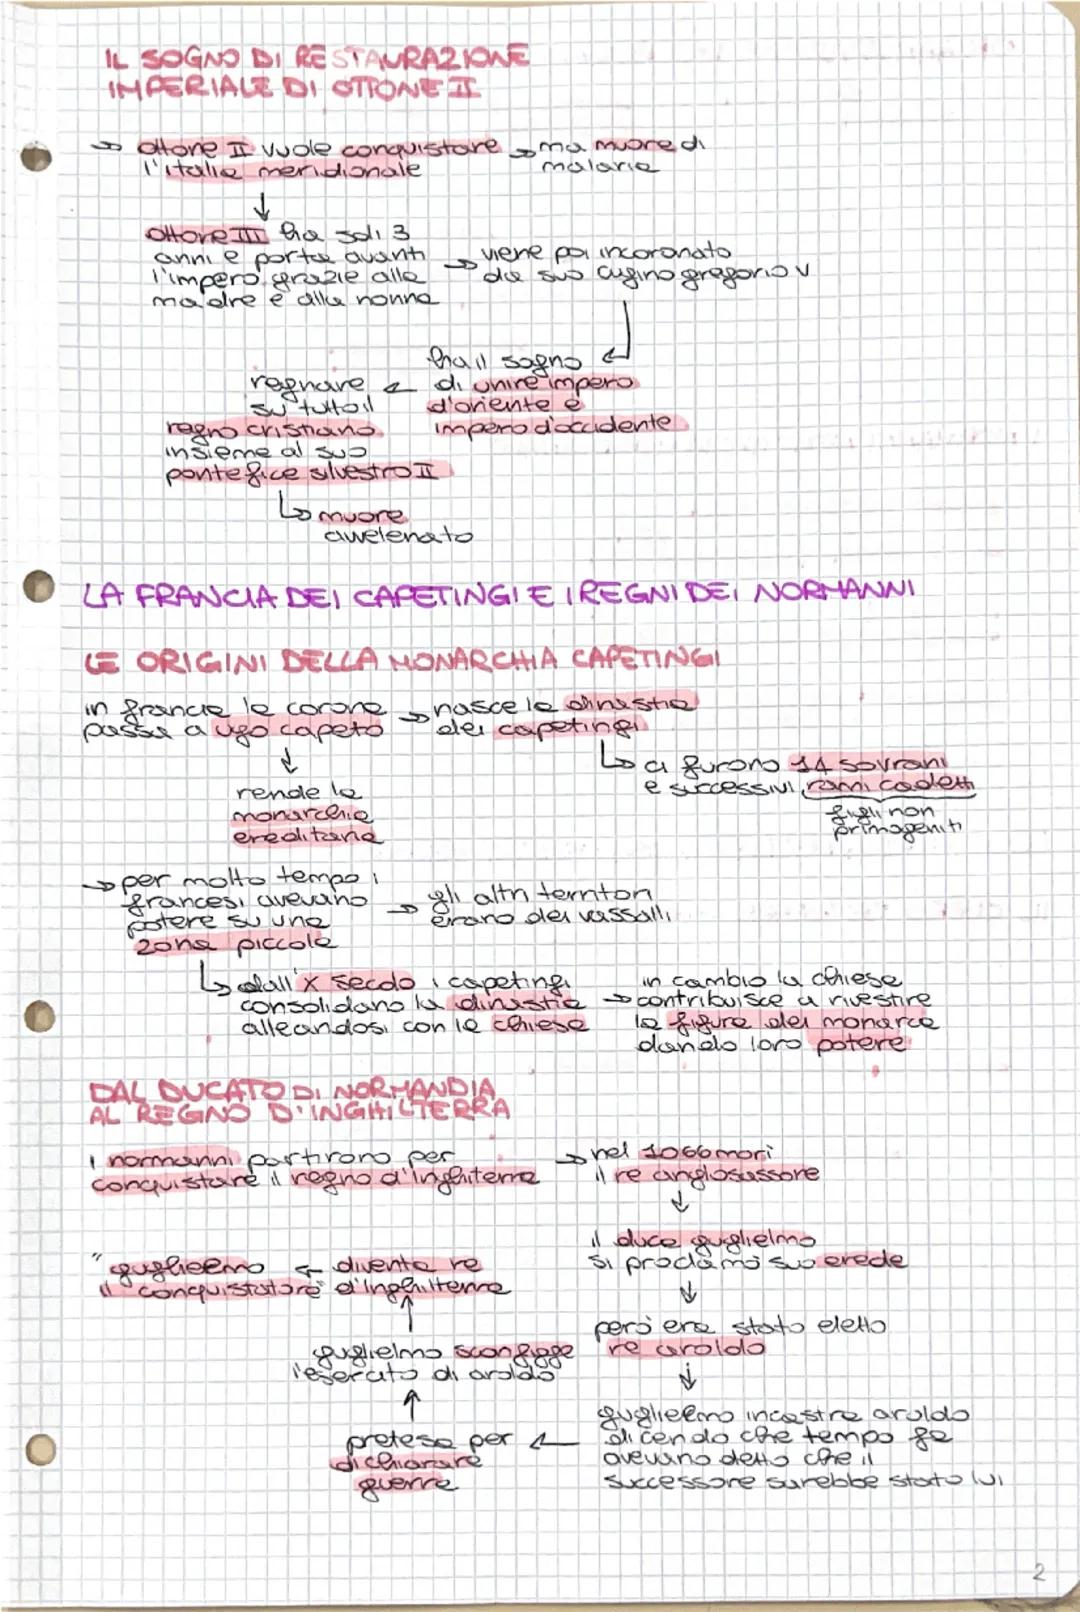 IL SOGNO DI RESTAURAZIONE
IMPERIALE DI OTTONE II
→ ottone II vuole conquistare → ma muore di
l'italia meridionale
malaria
↓
ottone III ha soli 3
anni e porta avanti
l'impero grazie alla
madre e alla nonna
→ viene poi incoronato
da suo cugino gregorio V
ha il sogno
di unire impero
d'oriente e
impero d'occidente
regnare
su tutto il
regno cristiano
insieme al suo
pontefice silvestro II
↳ muore
avvelenato
LA FRANCIA DEI CAPETINGI E I REGNI DEI NORMANNI
LE ORIGINI DELLA MONARCHIA CAPETINGI
in francia la corona
passa a ugo capeto
→ nasce la dinastia
dei capetingi
↳ ci furono 14 sovrani
e successivi rami cadetti
figli non
primogeniti
↓
rende la
monarchia
ereditaria
→ per molto tempo i
francesi avevano
potere su una
zona piccola
→ gli altri territori
erano dei vassalli
↳ dall'X secolo i capetingi
consolidano la dinastia
alleandosi con la chiesa
in cambio la chiesa
→ contribuisce a rivestire
la figura del monarca
dando loro potere
DAL DUCATO DI NORMANDIA
AL REGNO D'INGHILTERRA
i normanni partirono per
conquistare il regno d'inghilterra
→ nel 1066 morì
il re anglosassone
↓
il duca guglielmo
si proclamò suo erede
↓
però era stato eletto
re aroldo
↓
guglielmo incastra aroldo
dicendo che tempo fa
avevano detto che il
successore sarebbe stato lui
←
pretesa per
dichiarare
guerra
↑
guglielmo sconfigge
l'esercito di aroldo
↑
diventa re
d'inghilterra
←
"guglielmo
il conquistatore"
2